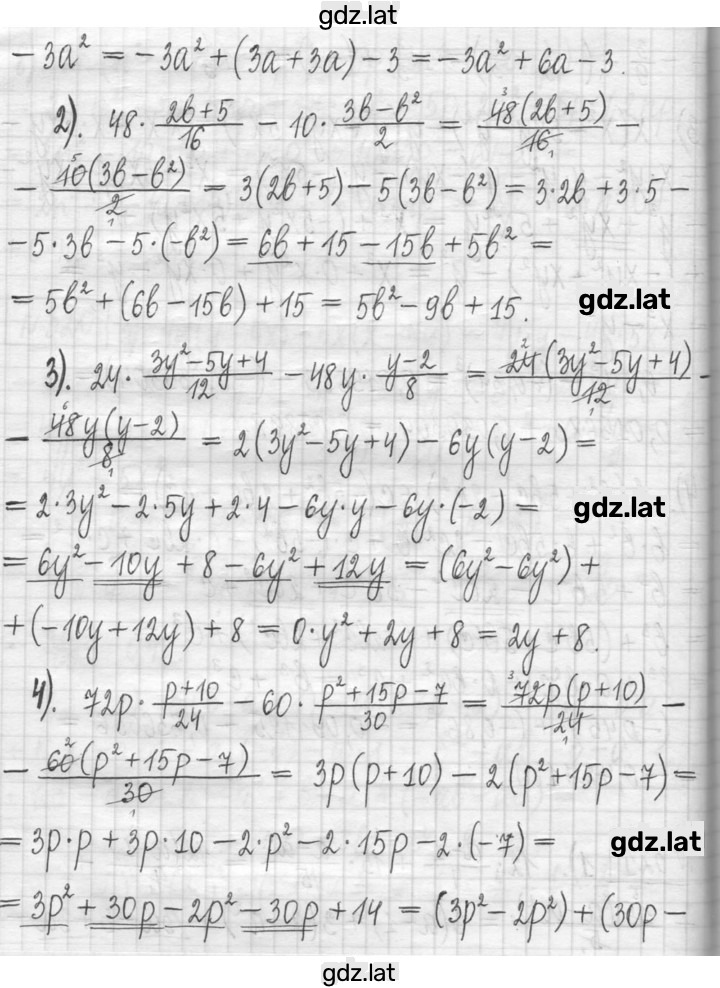 gdz.lat
- 3a² = -3a² + (3a + 3a) - 3 = -3a² + 6a - 3.
2). 48 · (2b+5)/16 - 10 · (3b-b²)/2 = 48(2b+5)/16 -
- 10(3b-b²)/2 = 3(2b+5) - 5(3b-b²) = 3·2b + 3·5 -
- 5·3b - 5·(-b²) = 6b + 15 - 15b + 5b² =
= 5b² + (6b - 15b) + 15 = 5b² - 9b + 15. gdz.lat
3). 24 · (3y²-5y+4)/12 - 48y · (y-2)/8 = 24(3y²-5y+4)/12 -
- 48y(y-2)/8 = 2(3y²-5y+4) - 6y(y-2) =
= 2·3y² - 2·5y + 2·4 - 6y·y - 6y·(-2) = gdz.lat
= 6y² - 10y + 8 - 6y² + 12y = (6y² - 6y²) +
+ (-10y + 12y) + 8 = 0·y² + 2y + 8 = 2y + 8.
4). 72p · (p+10)/24 - 60 · (p²+15p-7)/30 = 72p(p+10)/24 -
- 60(p²+15p-7)/30 = 3p(p+10) - 2(p²+15p-7) =
= 3p·p + 3p·10 - 2·p² - 2·15p - 2·(-7) = gdz.lat
= 3p² + 30p - 2p² - 30p + 14 = (3p² - 2p²) + (30p -
gdz.lat